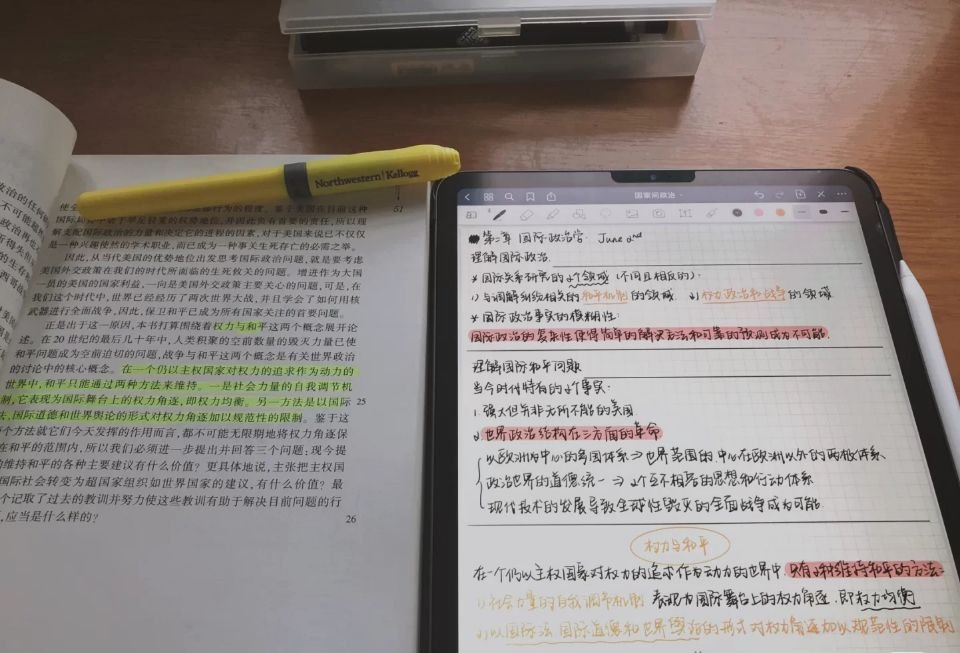 Northwestern | Kellogg
51
行为的程度。鉴于美国在目前这种
解支配国际政治的力量和决定它的进程的因素,对于美国来说已不仅仅
是一种兴趣使然的学术职业,而已成为一种事关生死存亡的必需之举。
因此,从当代美国的优势地位出发思考国际政治问题,就是要考虑
美国外交政策在我们的时代所面临的生死攸关的问题。增进作为大国
一员的美国的国家利益,一向是美国外交政策主要关心的问题,可是,在
我们这个时代中,世界已经经历了两次世界大战,并且学会了如何用核
武器进行全面战争,因此,保卫和平已成为所有国家关注的首要问题。
正是出于这一原因,本书打算围绕着权力与和平这两个概念展开论
述。在 20 世纪的最后几十年中,人类积聚的空前数量的毁灭力量已使
和平问题成为空前迫切的问题,战争与和平这两个概念是有关世界政治
的讨论中的核心概念。在一个仍以主权国家对权力的追求作为动力的
世界中,和平只能通过两种方法来维持。一是社会力量的自我调节机
制,它表现为国际舞台上的权力角逐,即权力均衡。另一方法是以国际 25
法,国际道德和世界舆论的形式对权力角逐加以规范性的限制。鉴于这
个方法就它们今天发挥的作用而言,都不可能无限期地将权力角逐保
在和平的范围内,所以我们必须进一步提出并回答三个问题,现今提
的维持和平的各种主要建议有什么价值?更具体地说,主张把主权国
国际社会转变为超国家组织如世界国家的建议,有什么价值?最
个记取了过去的教训并努力使这些教训有助于解决目前问题的行
,应当是什么样的?
26
国家间政治
第二章 国际政治学. June 2nd
理解国际政治.
* 国际关系研究的2个领域(不同且相反的):
1) 与调解制统相关的和平机制的领域 2) 权力政治和战争的领域
* 国际政治事实的模糊性:
国际政治的复杂性使得简单的解决方法和可靠的预测成为不可能.
理解国际和平问题
当今时代特有的2个事实:
1. 强大但并非无所不能的美国
2) 世界政治结构在三方面的革命
以欧洲为中心的多国体系→世界范围的中心在欧洲以外的两极体系
政治世界的道德统一 → 2个互不相容的思想和行动体系
现代技术的发展导致全球性毁灭的全面战争成为可能
权力与和平
在一个仍以主权国家对权力的追求作为动力的世界中,只有2种维持和平的方法:
1) 社会力量的自我调节机制 表现为国际舞台上的权力角逐,即权力均衡
2) 以国际法 国际道德和世界舆论的形式对权力角逐加以规范性的限制